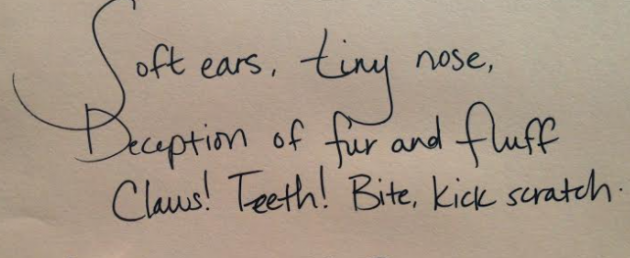 Soft ears, tiny nose,
Deception of fur and fluff
Claws! Teeth! Bite, kick scratch.